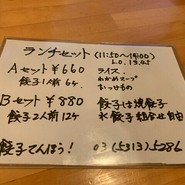 ランチセット (11:50～14:00)
L.O. 13:45
Aセット ¥660 ライス.
餃子1人前 6ヶ わかめスープ
おつけもの
Bセット ¥880 餃子は焼餃子
餃子2人前 12ヶ 水餃子 組合せ自由
餃子てんほう! 03(5313)5286